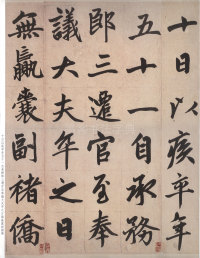 十日以疾卒年
五十一自承務
郎三遷官至奉
議大夫年之日
無贏囊副褚僑